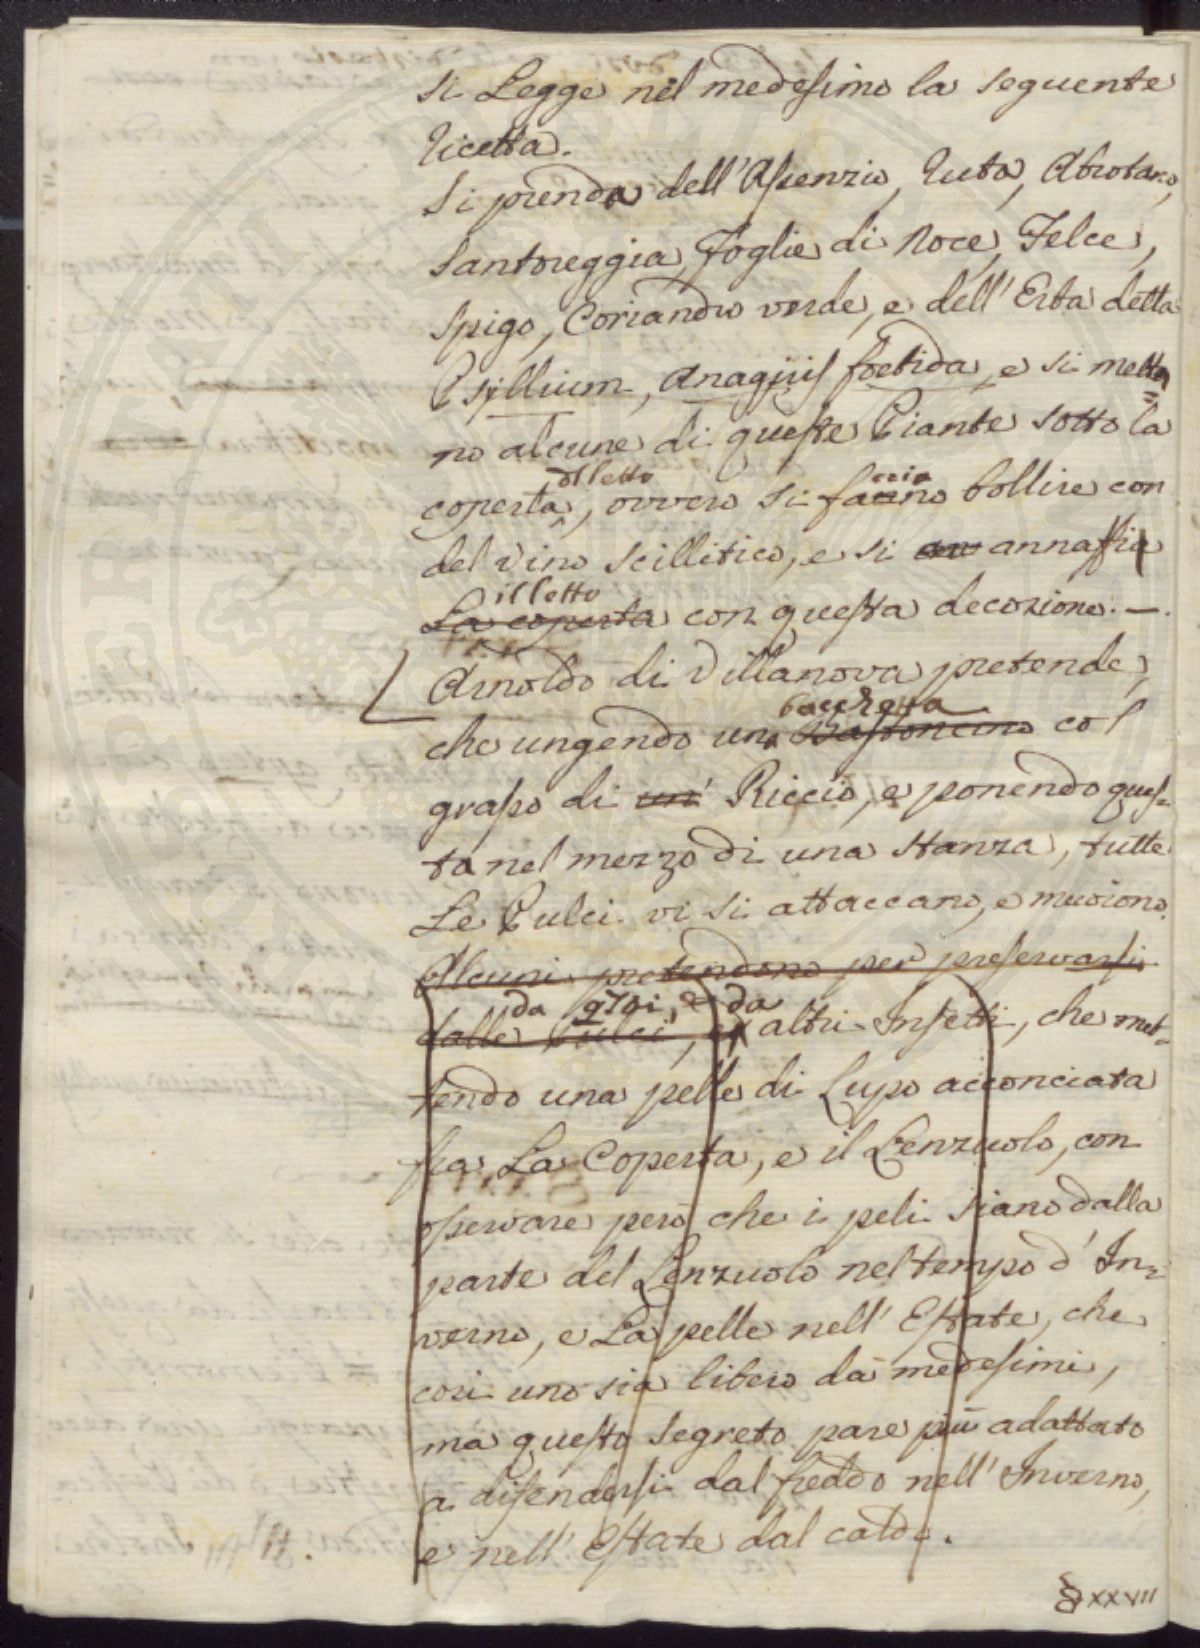 si Legge nel medesimo la seguente
ricetta.
Si prenda dell'Assenzio, ruta, Abrotano,
Santoreggia, foglie di noce, Felce,
spigo, Coriandro verde, e dell'Erba detta
Psyllium, foetida, e si metta
no alcune di queste Piante sotto la
delletto ccia
coperta, ovvero si fanno bollire con
del vino scillitico, e si an annaffia
illetto
La coperta con questa decozione. —
Arnoldo di Villanova pretende,
bacchetta
che ungendo una Bastoncino col
grasso di un' Riccio, e ponendo ques=
ta nel mezzo di una stanza, tutte
Le Pulci vi si attaccano, e muoiono.
Alcuni pretendono per preservarsi
da qsti, e da
dalle Pulci, altri Insetti, che met=
tendo una pelle di Lupo acconciata
fra La Coperta, e il Lenzuolo, con
osservare però che i peli siano dalla
parte del Lenzuolo nel tempo d'In=
verno, e La pelle nell'Estate, che
cosi uno sia libero da medesimi,
ma questo segreto pare più adattato
a difendersi dal freddo nell'Inverno,
e nell'Estate dal caldo.
§ XXVII